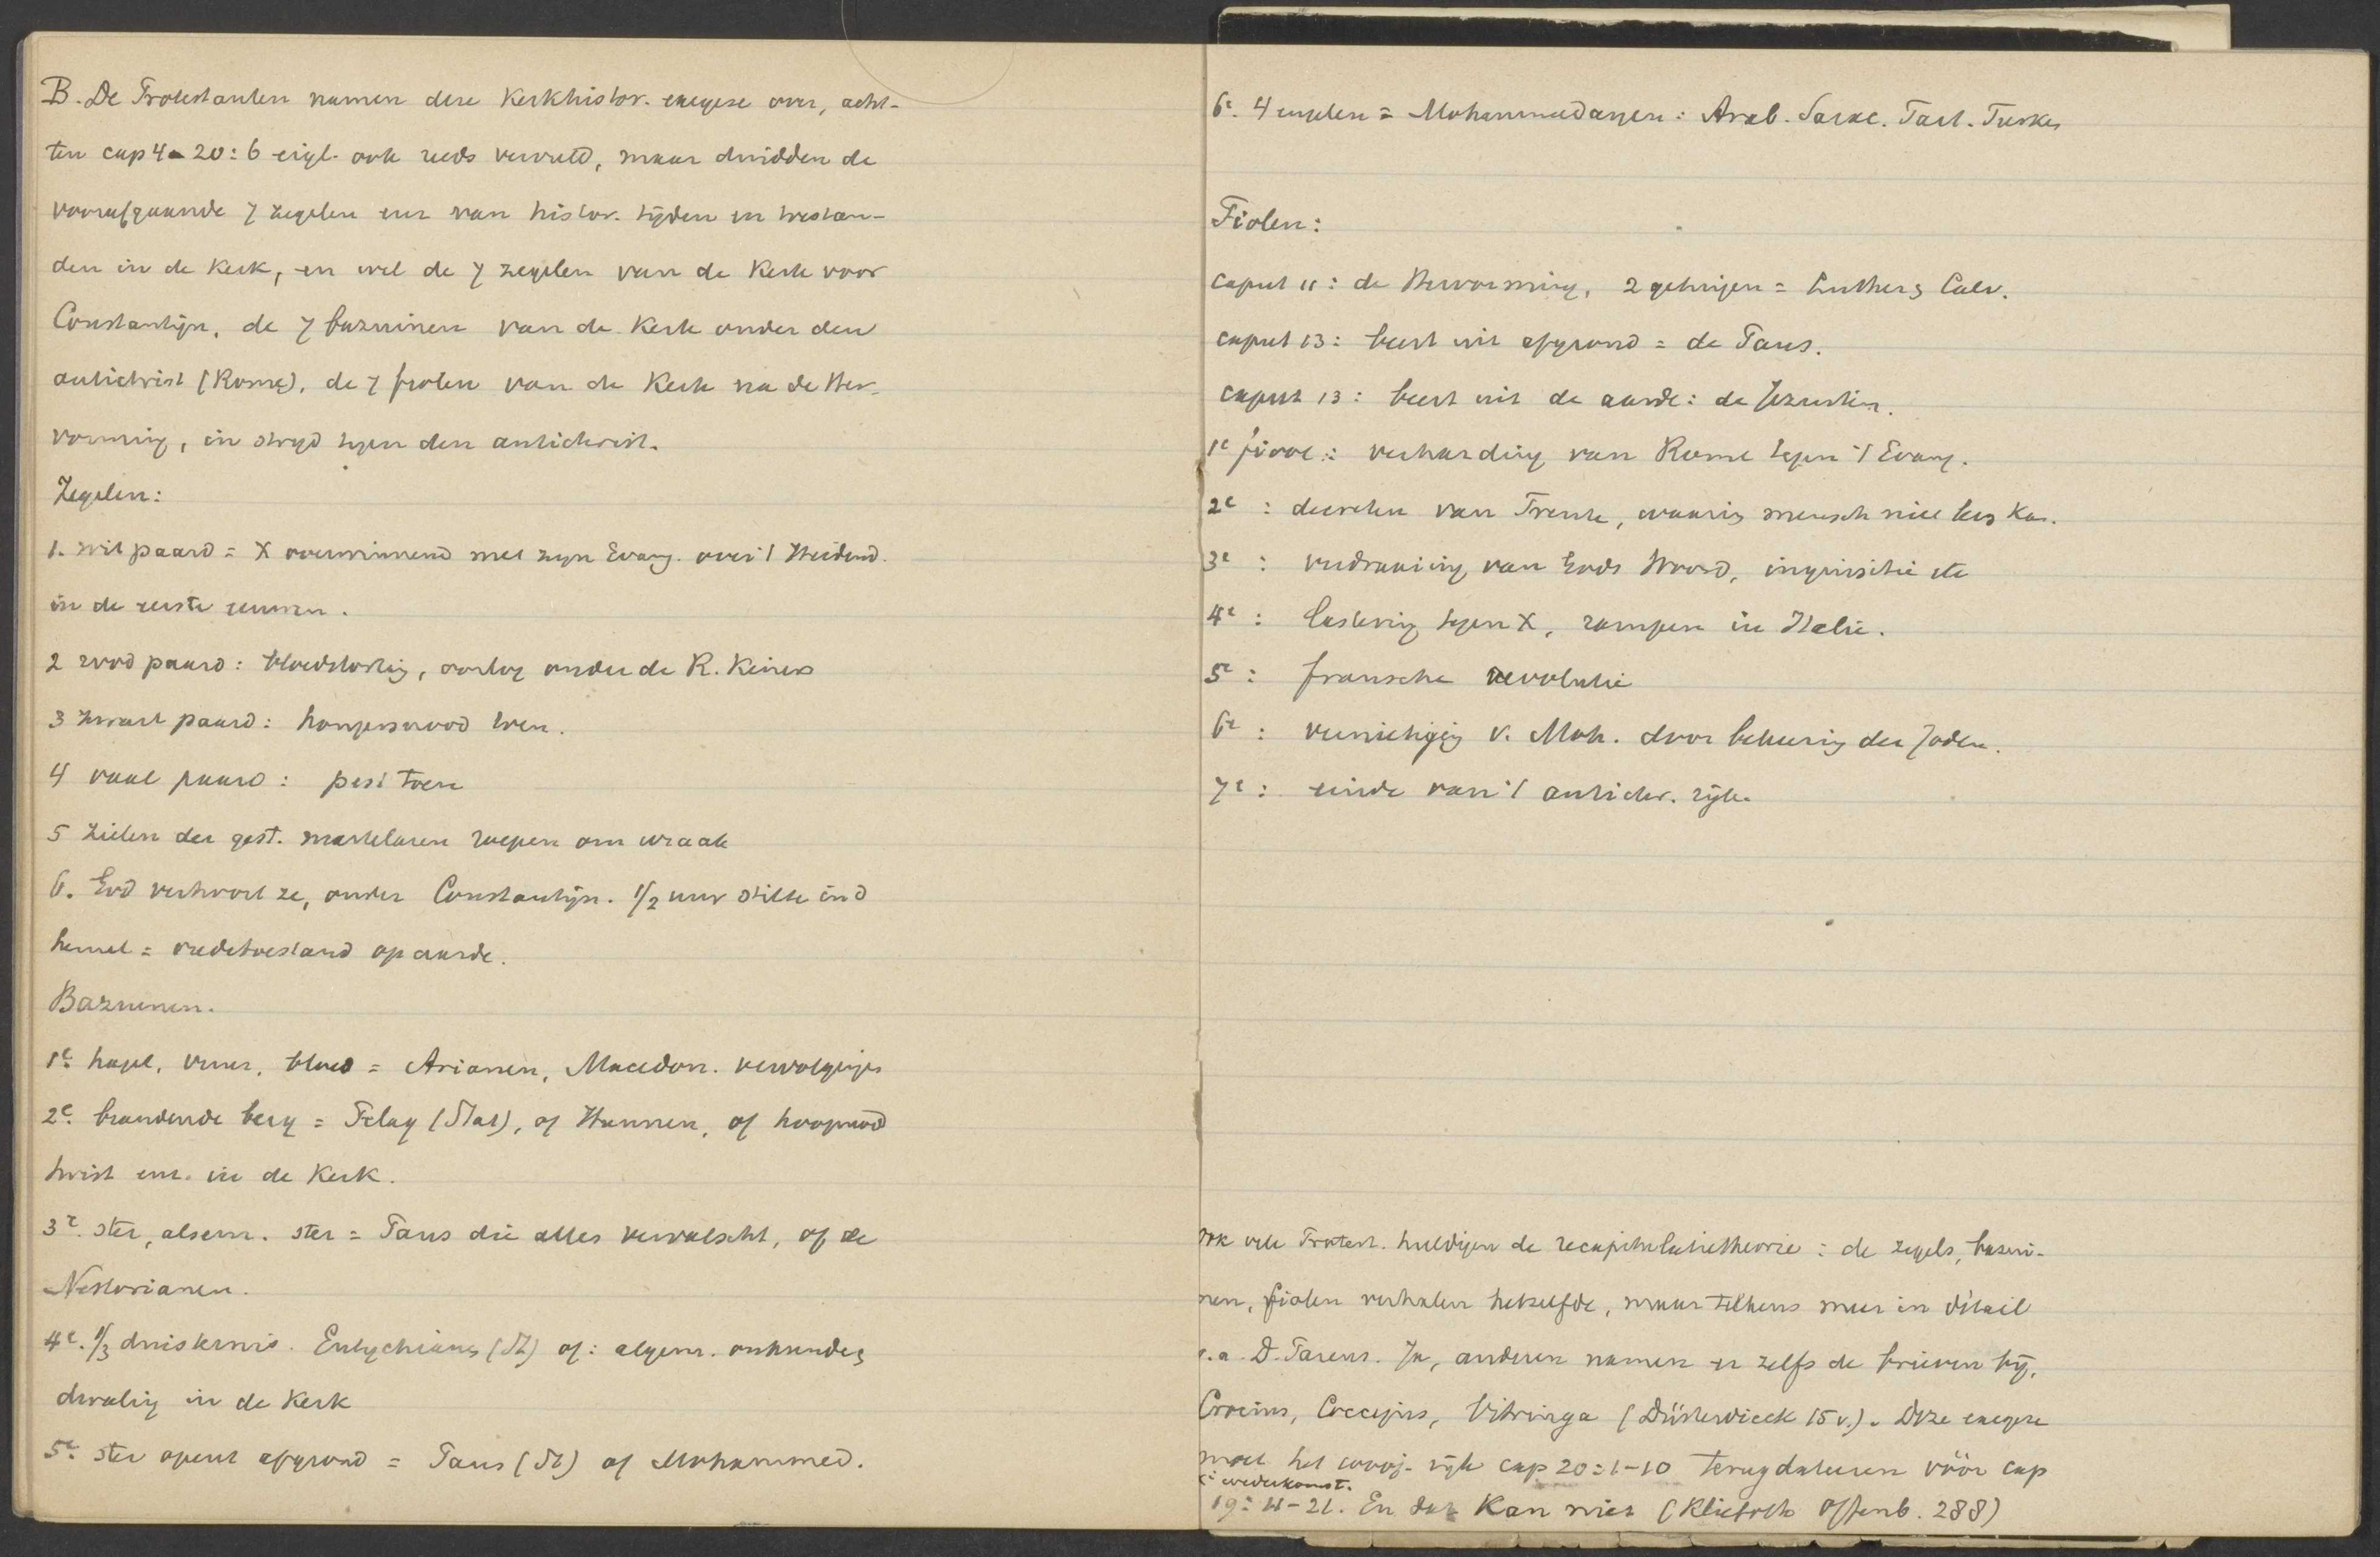 B. De Protestanten namen deze Kerkhistor. exegese over, acht-
ten cap 4-20:6 eigl. ook reeds vervuld, maar duidden de
voorafgaande 7 zegelen enz van histor. tijden en toestan-
den in de Kerk, en wel de 7 zegelen van de Kerk voor
Constantijn, de 7 bazuinen van de Kerk onder den
antichrist (Rome), de 7 fiolen van de Kerk na de Her-
vorming, in strijd tegen den antichrist.
Zegelen:
1. wit paard = X overwinnend met zijn Evang. over 't Heidend.
in de eerste eeuwen.
2 rood paard: bloedstorting, oorlog onder de R. Keizers
3 zwart paard: hongersnood toen.
4 vaal paard: pest toen
5 zielen der gest. martelaren roepen om wraak
6. God verhoort ze, onder Constantijn. 1/2 uur stilte in d
hemel = vredetoestand op aarde.
Bazuinen.
1e. hagel, vuur, bloed = Arianen, Macedon. vervolgingen
2e. brandende berg = Pelag (Stat), of Hunnen, of hoogmoed
twist enz. in de Kerk.
3e. ster, alsem. ster = Paus die alles vervalscht, of de
Nestorianen.
4e. 1/3 duisternis. Eutychianen (St) of: algem. onkunde,
dwaling in de Kerk
5e. ster opent afgrond = Paus (St) of Mohammed.
6e. 4 engelen = Mohammedanen: Arab. Sarac. Tart. Turken
Fiolen:
caput 11: de Hervorming, 2 getuigen = Luther, Calv.
caput 13: beest uit afgrond = de Paus.
caput 13: beest uit de aarde: de Jezuiten.
1e fiool: verharding van Rome tegen 't Evang.
2e: decreten van Trente, waarin mensch niet lev. kan.
3e: verdraaiing van Gods Woord, inquisitie etc
4e: lastering tegen X, rampen in Italie.
5e: fransche revolutie
6e: vernietiging v. Moh. door bekeering der Joden.
7e: einde van 't antichr. rijk.
ook vele Protest. huldigen de recapitulatietheorie: de zegels, bazui-
nen, fiolen verhalen hetzelfde, maar telkens meer in détail
o.a. D. Pareus. Ja, anderen namen er zelfs de brieven bij,
Crocius, Coccejus, Vitringa (Düsterdieck 15 v.). Deze exegese
moet het 1000j. rijk cap 20:1-10 terugdateeren vóór cap
i: wederkomst.
19:11-21. En dat kan niet (Kliefoth Offenb. 288)